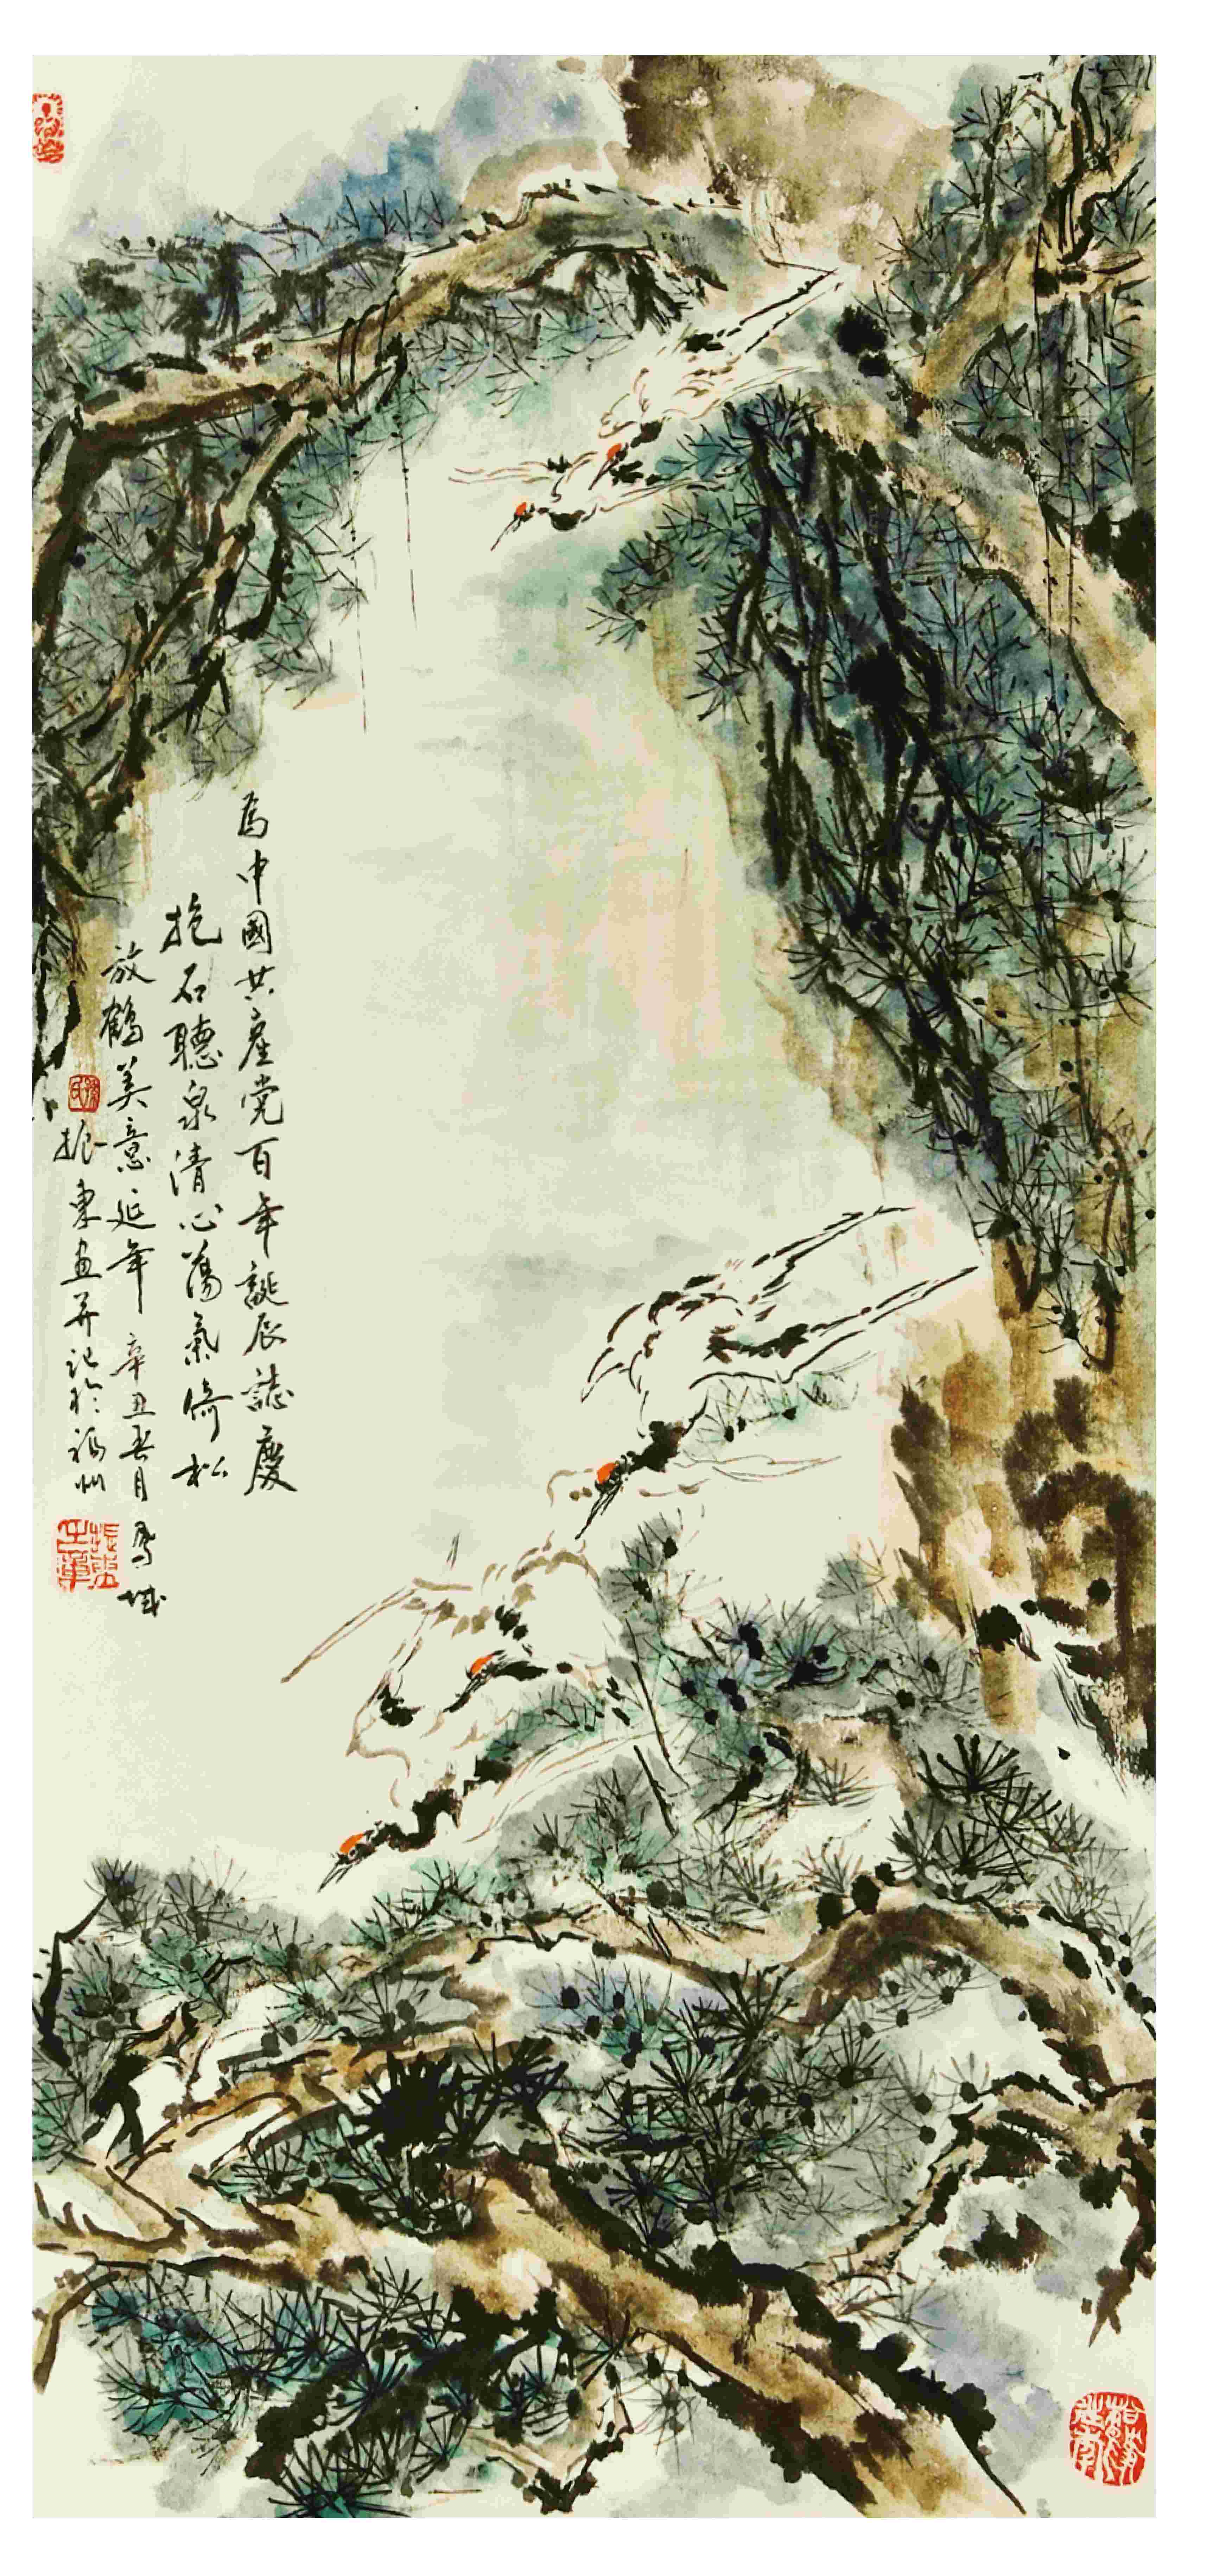 為中國共產党百年誕辰誌慶
抱石聽泉清心蕩氣倚松
放鶴美意延年 辛丑春月
振東畫并記於福州